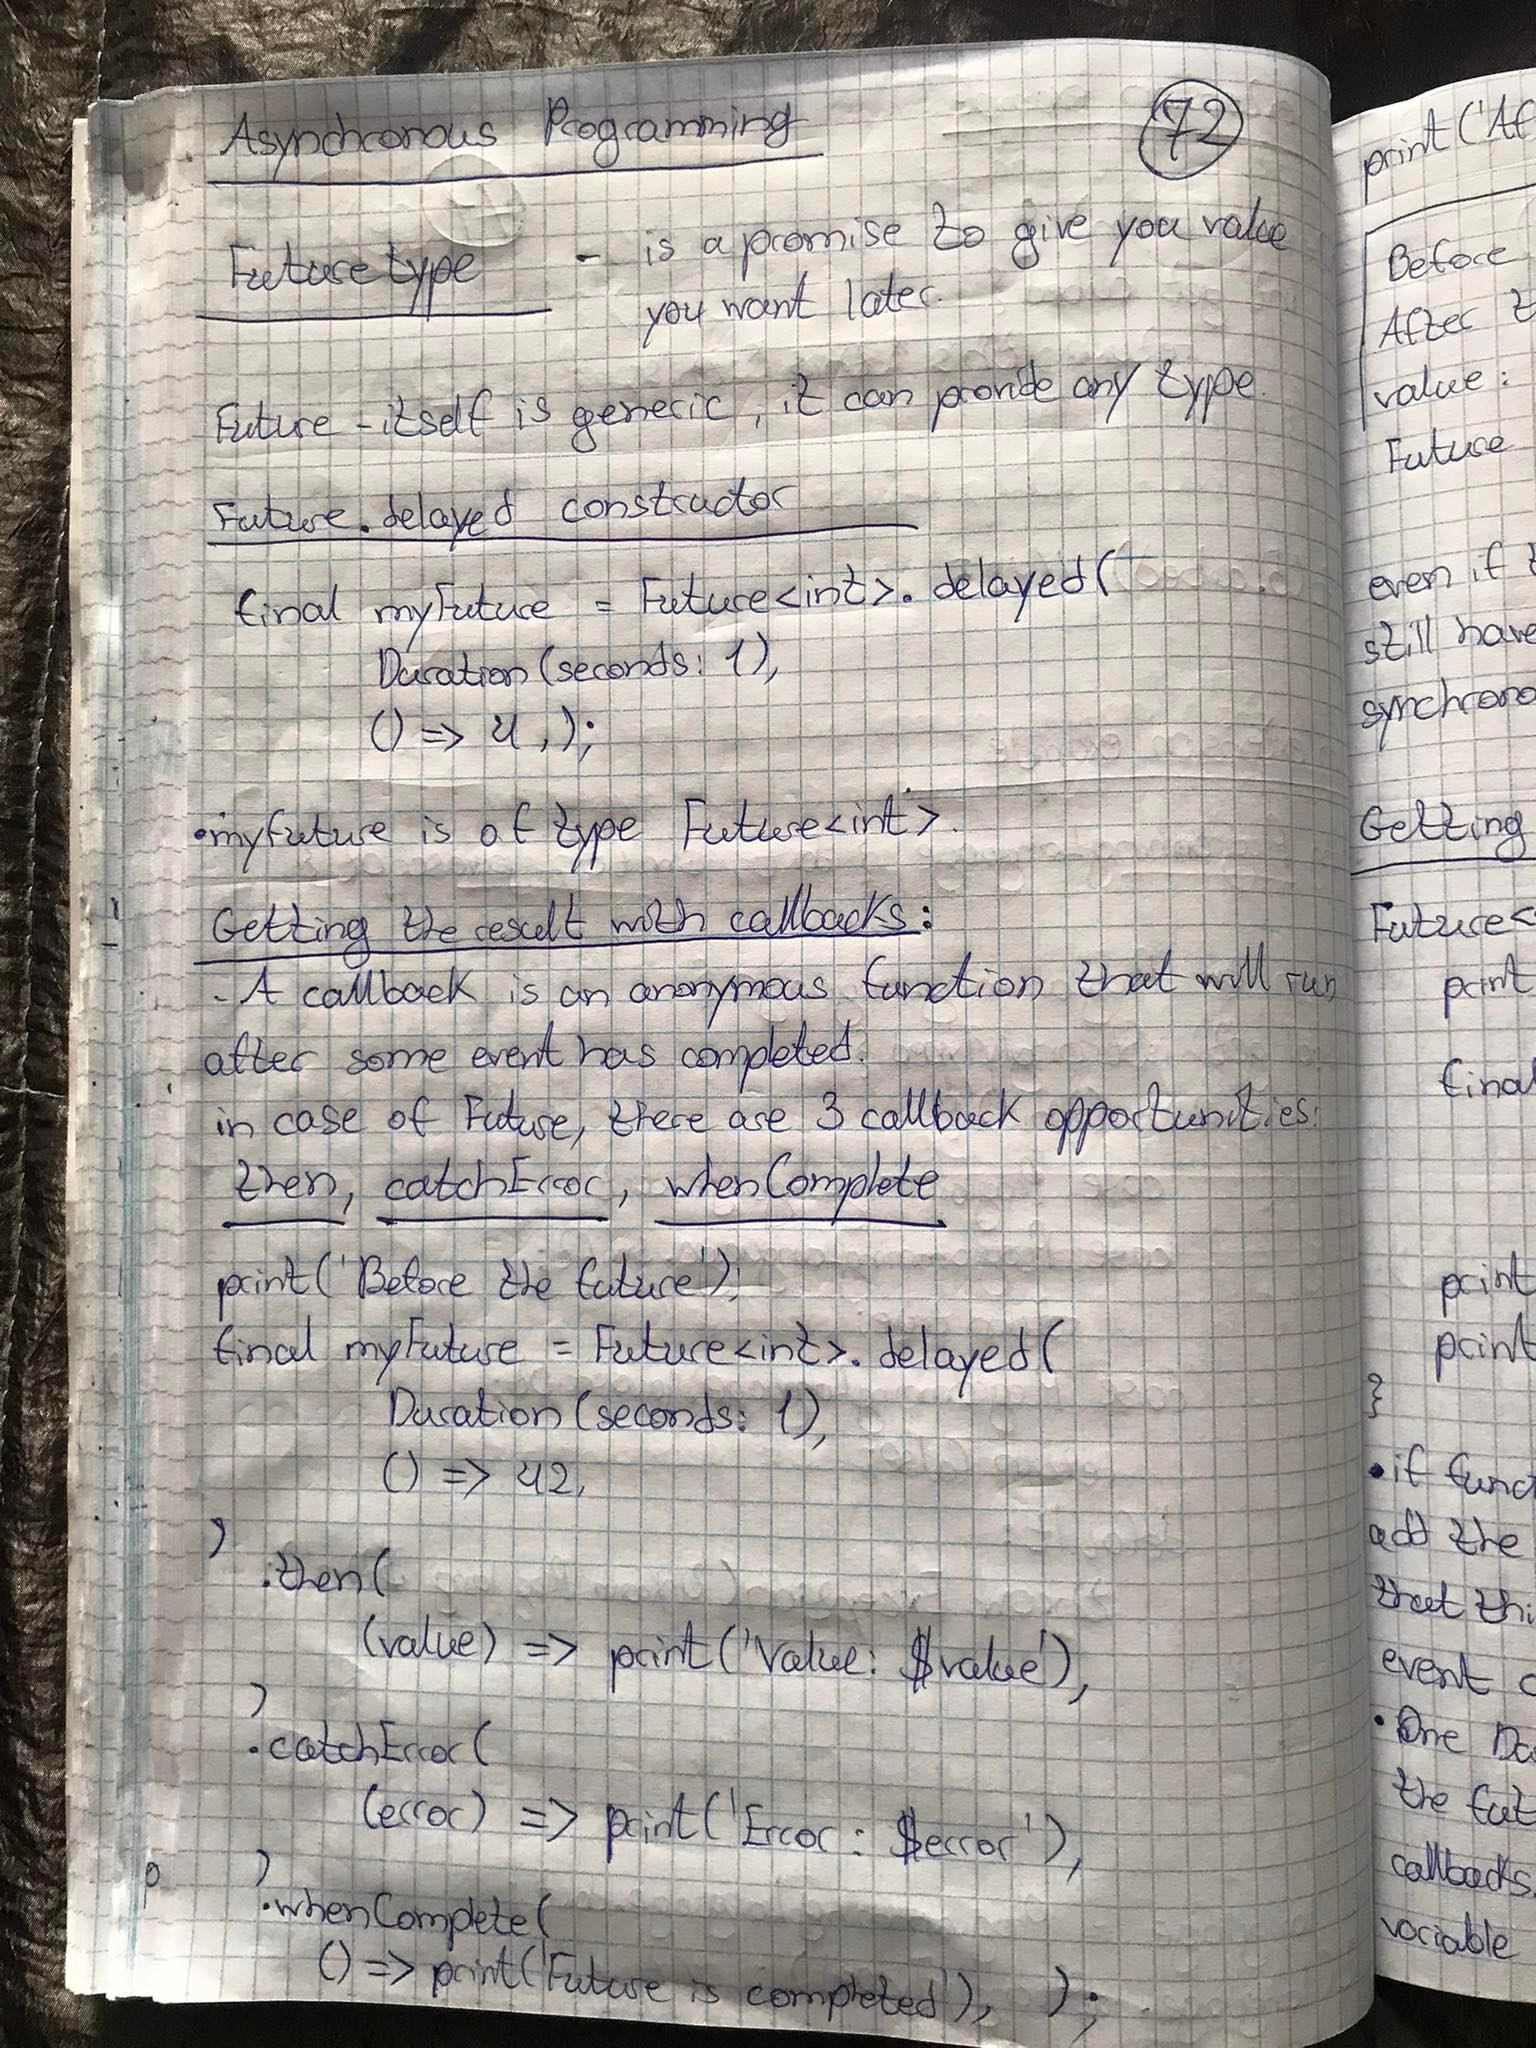 Asynchronous Programming
72
Future type - is a promise to give you value
you want later.
Future - itself is generic, it can provide any type.
Future.delayed constructor
final myFuture = Future<int>.delayed(
Duration(seconds: 1),
() => 4,);
• myFuture is of type Future<int>.
Getting the result with callbacks:
- A callback is an anonymous function that will run
after some event has completed.
in case of Future, there are 3 callback opportunities:
then, catchError, whenComplete
print('Before the future');
final myFuture = Future<int>.delayed(
Duration(seconds: 1),
() => 42,
)
.then(
(value) => print('Value: $value'),
)
.catchError(
(error) => print('Error: $error'),
)
.whenComplete(
() => print('Future is completed'), );
print('Af
Before
After t
value:
Future
even if t
still have
synchrono
Getting
Future<
print
final
print
print
}
• if funct
add the
that thi
event c
• One Da
the fut
callbacks.
variable